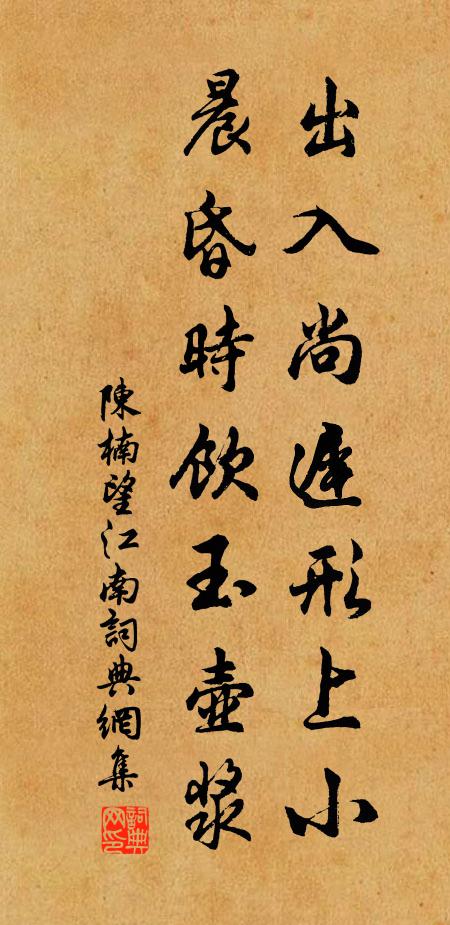 出入尚遲形上小
晨昏時飲玉壺漿
陳楠望江南詞典網集
詞典網印